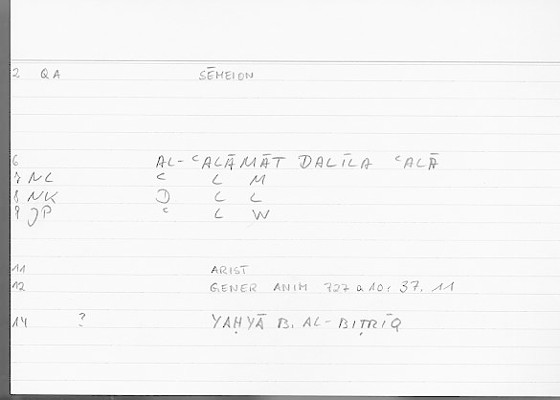 2 QA SĒMEION
6 AL-ᶜALĀMĀT DALĪLA ᶜALĀ
7 NL ᶜ L M
8 NK D L L
9 JP ᶜ L W
11 ARIST
12 GENER ANIM 727 a 10, 37, 11
14 ? YAḤYĀ B. AL-BIṬRĪQ